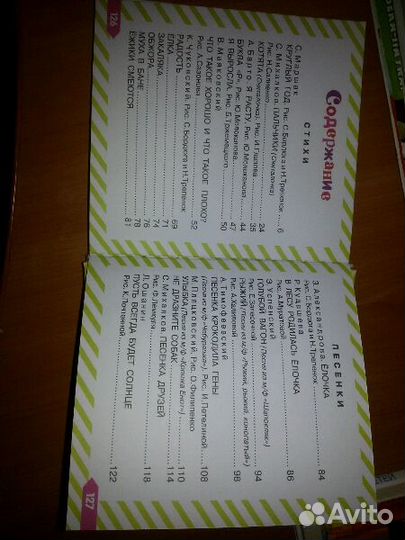 Содержание
СТИХИ
С. Маршак
КРУГЛЫЙ ГОД. Рис. С. Бордюга и Н. Трепенок ..... 6
С. Михалков. ПАЛЬЧИКИ (Считалочка).
КОТЯТА (Считалочка). Рис. И. Глазова ..... 24
А. Барто. Я РАСТУ. Рис. Ю. Молоканова ..... 35
БУКВА «Р». Рис. Ю. Молоканова ..... 44
Я ВЫРОСЛА. Рис. ..... 47
В. Маяковский
ЧТО ТАКОЕ ХОРОШО И ЧТО ТАКОЕ ПЛОХО?
Рис. А. Сазонова ..... 50
К. Чуковский. Рис. С. Бордюга и Н. Трепенок
РАДОСТЬ ..... 52
ЁЛКА ..... 69
ЗАКАЛЯКА ..... 71
ОБЖОРА ..... 74
МУХА В БАНЕ ..... 76
ЁЖИКИ СМЕЮТСЯ ..... 78
81
126
ПЕСЕНКИ
З. Александрова. ЁЛОЧКА
Рис. С. Бордюга и Н. Трепенок ..... 84
Р. Кудашева
В ЛЕСУ РОДИЛАСЬ ЁЛОЧКА
86
Э. Успенский
ГОЛУБОЙ ВАГОН (Песня из м/ф «Шапокляк»)
94
РЫЖИЙ (Песня из м/ф «Рыжий, рыжий, конопатый»)
98
А. Тимофеевский
ПЕСЕНКА КРОКОДИЛА ГЕНЫ
(Песня из м/ф «Чебурашка»). Рис. И. Петелиной ..... 108
М. Пляцковский. Рис. О. Филипенко
УЛЫБКА (Песня из м/ф «Крошка Енот») ..... 110
НЕ ДРАЗНИТЕ СОБАК ..... 114
С. Михалков. ПЕСЕНКА ДРУЗЕЙ
118
Л. Ошанин
ПУСТЬ ВСЕГДА БУДЕТ СОЛНЦЕ
Рис. К. Третьяковой ..... 122
127
Avito